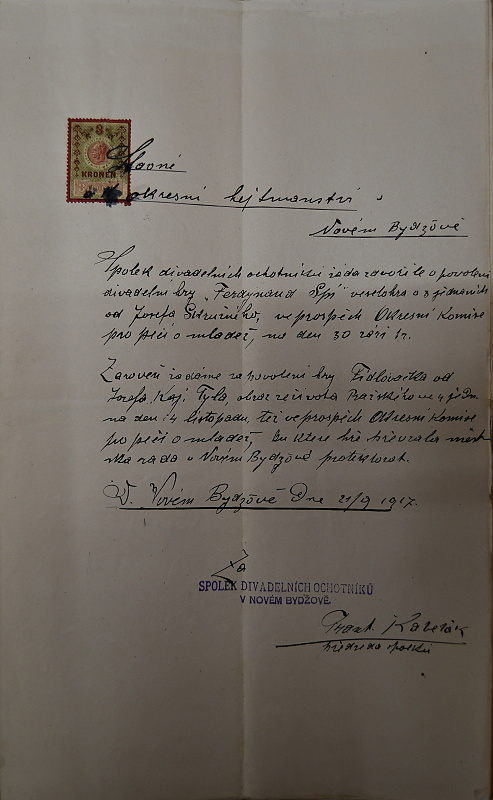 3
KRONEN
Slavné
c. k. okresní hejtmanství v
Novém Bydžově
Spolek divadelních ochotníků žádá zdvořile o povolení
divadelní hry „Ferdynand spí" veselohra o 3 jednáních
od Josefa Skružného, ve prospěch Okresní Komise
pro péči o mládež, na den 30 září t.r.
Zároveň žádáme za povolení hry Fidlovačka od
Josefa Kaj. Tyla, obraz ze života Pražského ve 4 jedn.
na den 14 listopadu, též ve prospěch Okresní Komise
pro péči o mládež, ku které hře převzala měst
ská rada v Novém Bydžově protektorát.
V. Novém Bydžově Dne 21/9 1917.
Za
SPOLEK DIVADELNÍCH OCHOTNÍKŮ
V NOVÉM BYDŽOVĚ.
Frant.
předseda spolku